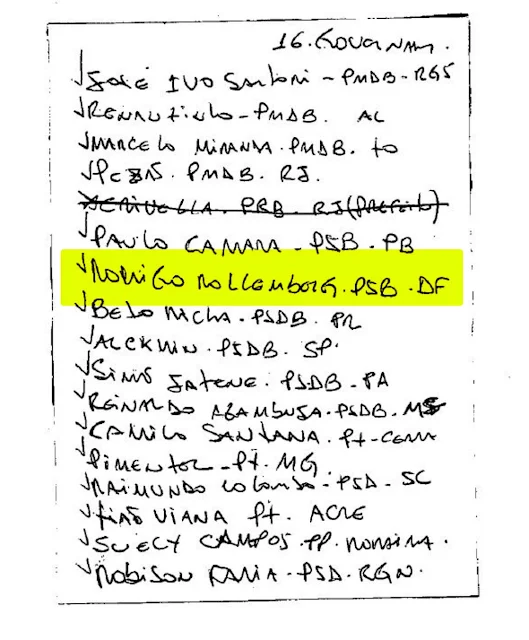 16. GOVERNAD.
√JOSÉ IVO SARTORI - PMDB - RGS
√RENANZINHO - PMDB. AL
√MARCELO MIRANDA. PMDB. TO
√PEZÃO. PMDB. RJ.
√CRIVELLA. PRB. RJ (PREFEITO)
√PAULO CAMARA - PSB. PB
√RODRIGO ROLLEMBERG. PSB. DF
√BETO RICHA. PSDB. PR
√ALCKMIN. PSDB. SP.
√SIMÃO JATENE. PSDB - PA
√REINALDO AZAMBUJA. PSDB. MS
√CAMILO SANTANA. PT - CEARA
√PIMENTEL - PT. MG
√RAIMUNDO COLOMBO - PSD - SC
√TIÃO VIANA PT. ACRE
√SUELY CAMPOS. PP. RORAIMA.
√ROBISON FARIA - PSD. RGN.